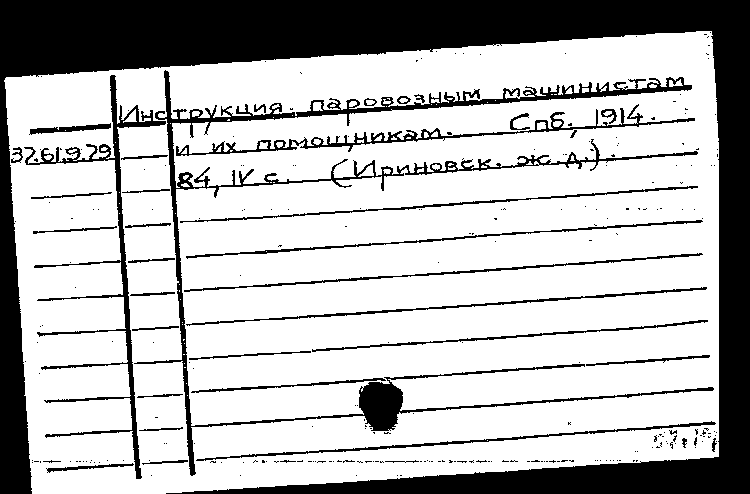 Инструкция паровозным машинистам
37.61.9.29 и их помощникам. Спб, 1914.
84, IV с. (Ириновск. ж.д.).